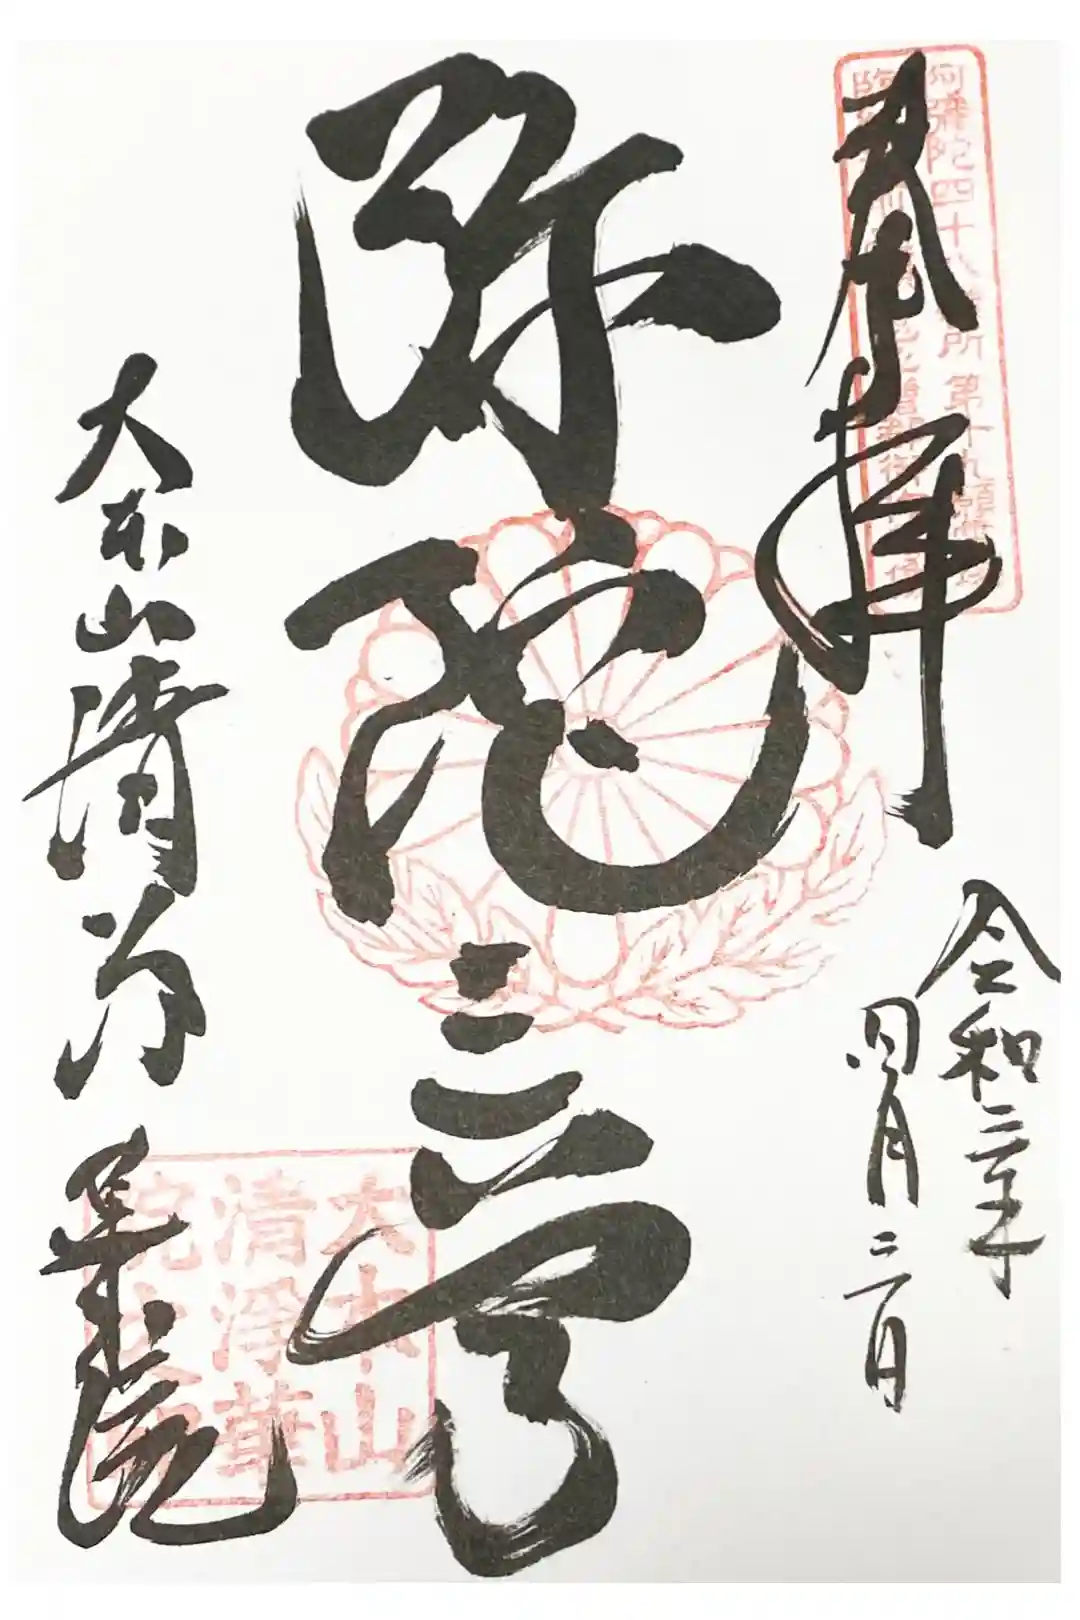 奉拝
令和二年
四月二日
弥陀三尊
大本山清浄華院
阿彌陀四十八願所 第十九願
大本山
清淨華
院